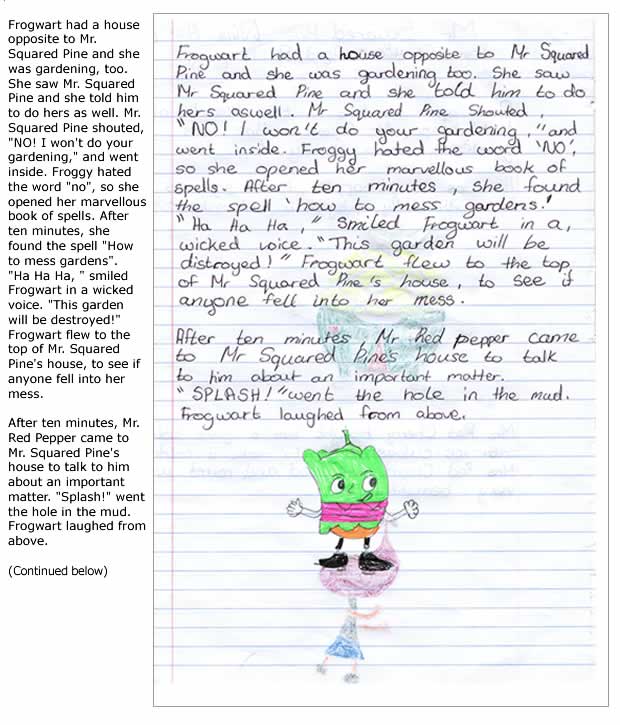 Frogwart had a house
opposite to Mr.
Squared Pine and she
was gardening, too.
She saw Mr. Squared
Pine and she told him
to do hers as well. Mr.
Squared Pine shouted,
"NO! I won't do your
gardening," and went
inside. Froggy hated
the word "no", so she
opened her marvellous
book of spells. After
ten minutes, she
found the spell "How
to mess gardens".
"Ha Ha Ha, " smiled
Frogwart in a wicked
voice. "This garden
will be destroyed!"
Frogwart flew to the
top of Mr. Squared
Pine's house, to see if
anyone fell into her
mess.
After ten minutes, Mr.
Red Pepper came to
Mr. Squared Pine's
house to talk to him
about an important
matter. "Splash!" went
the hole in the mud.
Frogwart laughed from
above.
(Continued below)
Frogwart had a house opposite to Mr Squared
Pine and she was gardening too. She saw
Mr Squared Pine and she told him to do
hers aswell. Mr Squared Pine Shouted,
"NO! I won't do your gardening," and
went inside. Froggy hated the word 'NO',
so she opened her marvellous book of
spells. After ten minutes, she found
the spell 'how to mess gardens.'
"Ha Ha Ha," smiled Frogwart in a,
wicked voice. "This garden will be
distroyed!" Frogwart flew to the top
of Mr Squared Pine's house, to see if
anyone fell into her mess.
After ten minutes, Mr Red pepper came
to Mr Squared Pine's house to talk
to him about an important matter.
"SPLASH!" went the hole in the mud.
Frogwart laughed from above.